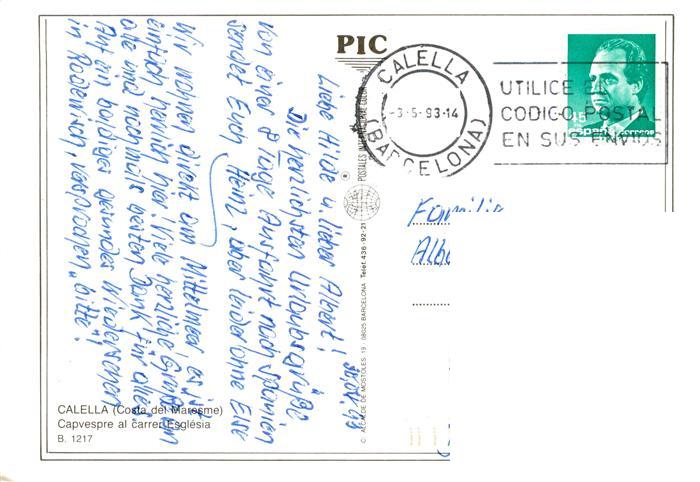 PIC
CALELLA
-3-5-93-14
(BARCELONA)
UTILICE EN
CODIGO POSTAL
EN SUS ENVIOS
45
España correos
Familie
Liebe Hilde u. lieber Albert!
Die herzlichsten Urlaubsgrüße
von einer Flüge Ausfahrt nach Spanien
sendet Euch, Heinz, aber leider ohne Else
Wir wohnen direkt am Mittelmeer es ist
einfach herrlich hier! Viele herzliche Grüße an
alle und nochmals besten Dank für alles
Auf ein baldiges gesundes Wiedersehen
in Rodewisch, versprochen, bitte!
POSTALES INTERNACIONAL COLOR
© ALCALDE DE MOSTOLES, 19 · 08025 BARCELONA Telef. 436-92-21
CALELLA (Costa del Maresme)
Capvespre al carrer Església
B. 1217